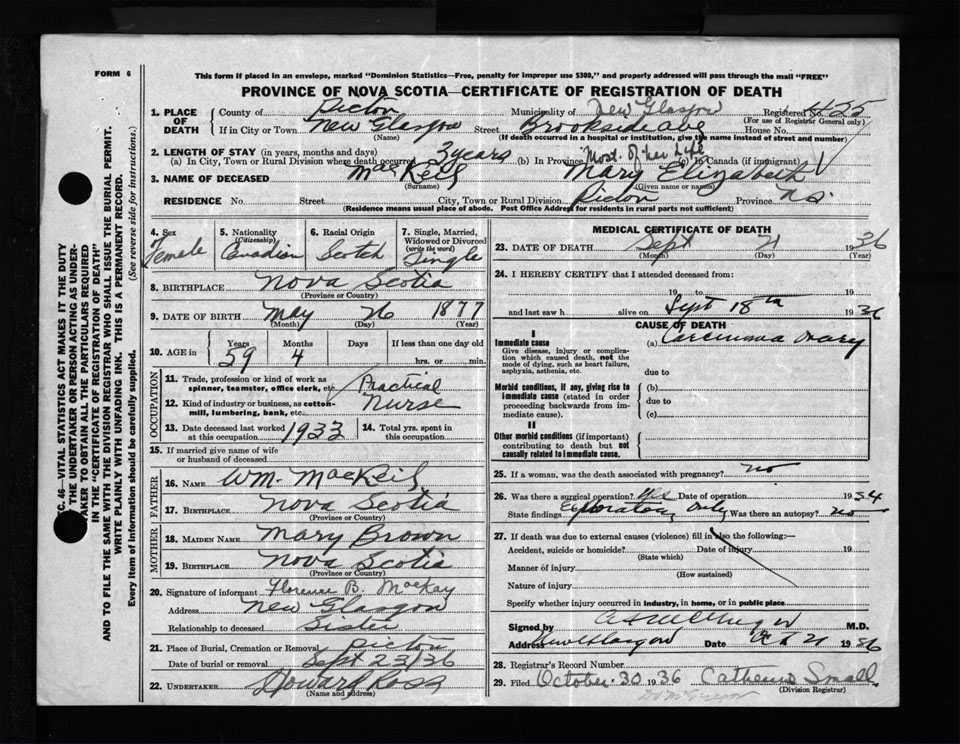 FORM 6
This form if placed in an envelope, marked "Dominion Statistics—Free, penalty for improper use $300," and properly addressed will pass through the mail "FREE"
PROVINCE OF NOVA SCOTIA—CERTIFICATE OF REGISTRATION OF DEATH
1. PLACE OF DEATH County of Pictou Municipality of New Glasgow Registered No. 4425
(For use of Registrar General only)
If in City or Town New Glasgow Street Brookside Ave House No.
(Name) (If death occurred in a hospital or institution, give the name instead of street and number)
2. LENGTH OF STAY (in years, months and days)
(a) In City, Town or Rural Division where death occurred 3 years (b) In Province Most of her Life (c) In Canada (if immigrant)
3. NAME OF DECEASED MacKeil Mary Elizabeth
(Surname) (Given name or names)
RESIDENCE No. Street City, Town or Rural Division Pictou Province N.S.
(Residence means usual place of abode. Post Office Address for residents in rural parts not sufficient)
4. Sex Female
5. Nationality (Citizenship) Canadian
6. Racial Origin Scotch
7. Single, Married, Widowed or Divorced (write the word) Single
8. BIRTHPLACE Nova Scotia
(Province or Country)
9. DATE OF BIRTH May 26 1877
(Month) (Day) (Year)
10. AGE in Years 59 Months 4 Days If less than one day old hrs. or min.
OCCUPATION
11. Trade, profession or kind of work as spinner, teamster, office clerk, etc. Practical
12. Kind of industry or business, as cotton-mill, lumbering, bank, etc. Nurse
13. Date deceased last worked at this occupation 1933
14. Total yrs. spent in this occupation
15. If married give name of wife or husband of deceased
FATHER
16. NAME Wm. MacKeil
17. BIRTHPLACE Nova Scotia
(Province or Country)
MOTHER
18. MAIDEN NAME Mary Brown
19. BIRTHPLACE Nova Scotia
(Province or Country)
20. Signature of informant Florence B. MacKay
Address New Glasgow
Relationship to deceased Sister
21. Place of Burial, Cremation or Removal Pictou
Date of burial or removal Sept 23/36
22. UNDERTAKER Howard Ross
(Name and address)
MEDICAL CERTIFICATE OF DEATH
23. DATE OF DEATH Sept 21 1936
(Month) (Day) (Year)
24. I HEREBY CERTIFY that I attended deceased from:
19 to 19
and last saw h alive on Sept 18th 1936
CAUSE OF DEATH
I
Immediate cause
Give disease, injury or complication which caused death, not the mode of dying, such as heart failure, asphyxia, asthenia, etc.
(a) Carcinoma Ovary
due to
Morbid conditions, if any, giving rise to immediate cause (stated in order proceeding backwards from immediate cause).
(b)
due to
(c)
II
Other morbid conditions (if important) contributing to death but not causally related to immediate cause.
25. If a woman, was the death associated with pregnancy? no
26. Was there a surgical operation? Yes Date of operation 1934
State findings Exploratory Only Was there an autopsy? no
27. If death was due to external causes (violence) fill in also the following:—
Accident, suicide or homicide? Date of injury 19
(State which)
Manner of injury
(How sustained)
Nature of injury
Specify whether injury occurred in industry, in home, or in public place
Signed by M.D.
Address New Glasgow Date 21 1936
28. Registrar's Record Number
29. Filed October 30 1936 Catherine Small
(Division Registrar)
SEC. 46—VITAL STATISTICS ACT MAKES IT THE DUTY
OF THE UNDERTAKER OR PERSON ACTING AS UNDER-
TAKER TO OBTAIN ALL THE PARTICULARS REQUIRED
IN THE "CERTIFICATE OF REGISTRATION OF DEATH"
AND TO FILE THE SAME WITH THE DIVISION REGISTRAR WHO SHALL ISSUE THE BURIAL PERMIT.
WRITE PLAINLY WITH UNFADING INK. THIS IS A PERMANENT RECORD.
Every item of information should be carefully supplied. (See reverse side for instructions.)